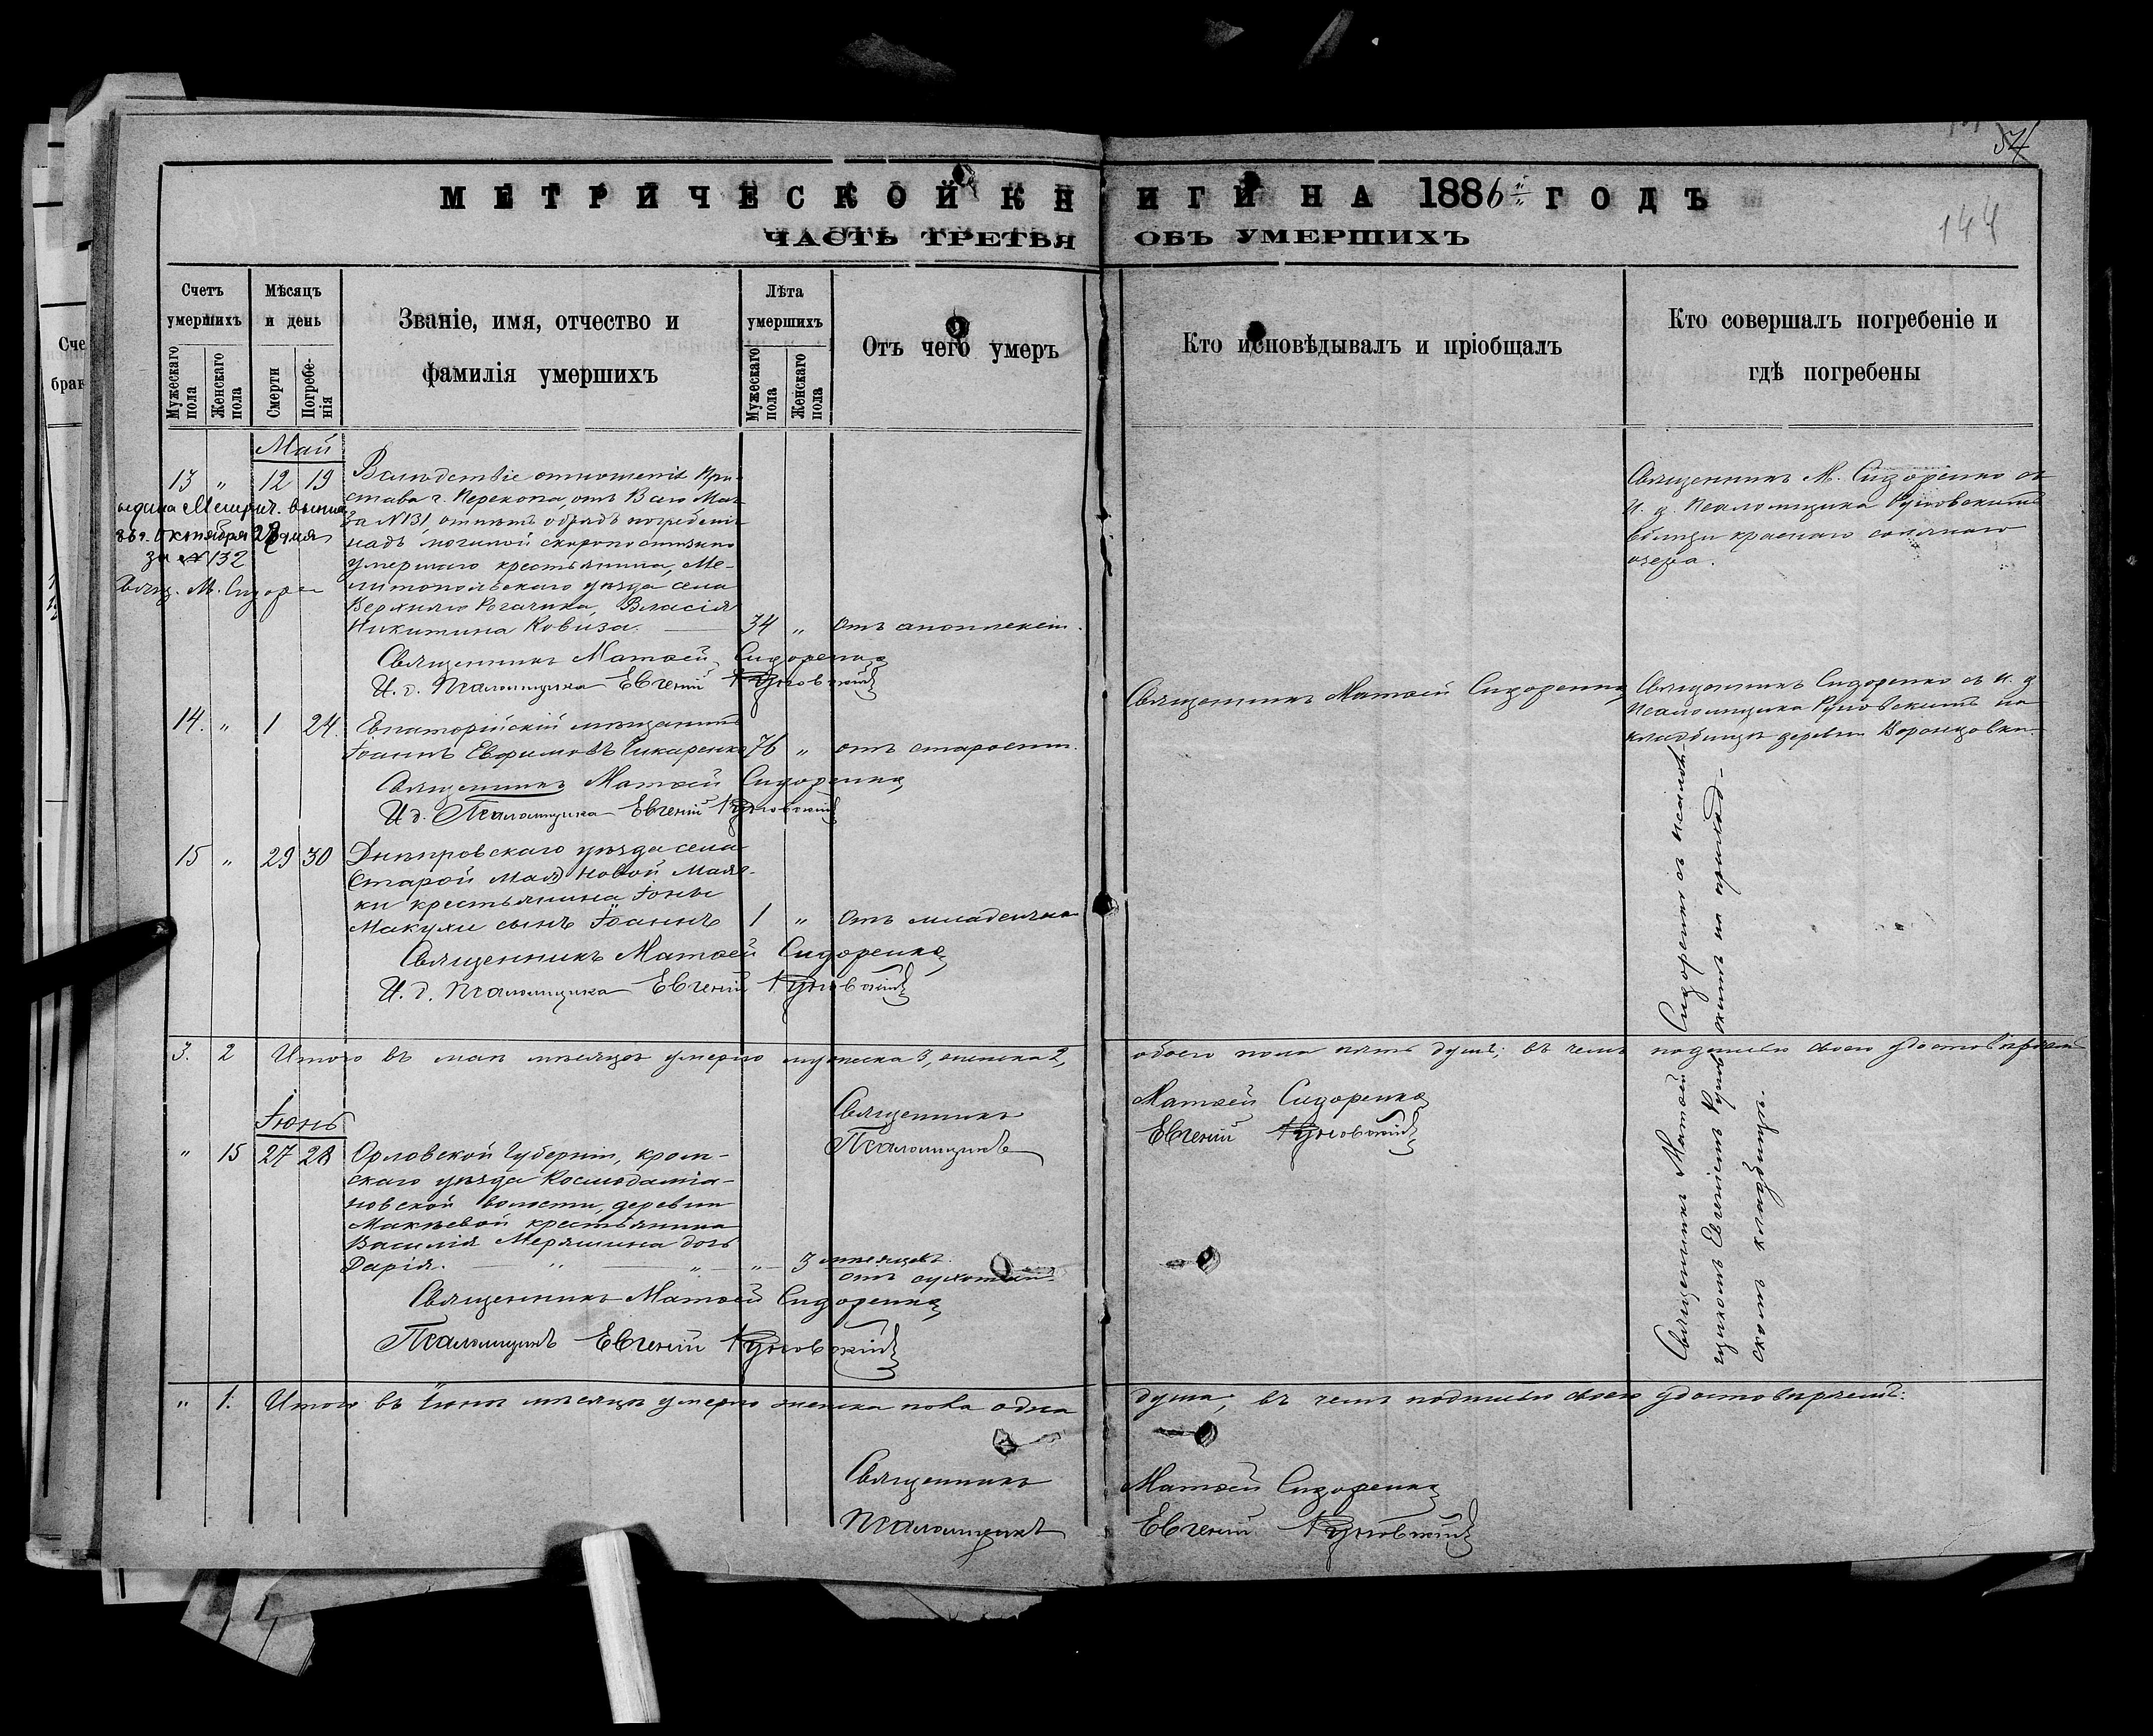 54
МЕТРИЧЕСКОЙ КНИГИ НА 1886 й ГОДЪ
144
ЧАСТЬ ТРЕТЬЯ ОБЪ УМЕРШИХЪ
Счетъ умершихъ
Мѣсяцъ и день
Званіе, имя, отчество и фамилія умершихъ
Лѣта умершихъ
Отъ чего умеръ
Кто исповѣдывалъ и пріобщалъ
Кто совершалъ погребеніе и гдѣ погребены
Мужескаго пола
Женскаго пола
Смерти
Погребенія
Мужескаго пола
Женскаго пола
Сче
бра
Май
13 " 12 19 Вслѣдствіе отношенія При-
става г. Перекопа, отъ 13 сего Мая
за №131, отпѣтъ обрядъ погребенія
надъ могилой скоропостижно
умершаго крестьянина, Ме-
литопольскаго уѣзда села
Верхняго Рогачика, Власія
Никитина Ковиза. 34 " Отъ апоплексіи.
Метрич. выпис
86 г. Октября 28 дня
за №132
Свящ. М. Сидоре
Священникъ М. Сидоренко съ
И. д. Псаломщика Руновскимъ
вблизи краснаго солянаго
озера.
Священникъ Матѳей Сидоренко
И. д. Псаломщика Евгеній Руновскій
14. " 1 24. Евпаторійскій мѣщанинъ
Іоаннъ Евфимовъ Чикаренко 76 " отъ старости.
Священникъ Матѳей Сидоренко
Священникъ Сидоренко съ и. д.
Псаломщика Руновскимъ на
кладбищѣ деревни Воронцовки.
Священникъ Матѳей Сидоренко
И д. Псаломщика Евгеній Руновскій
15 " 29 30 Днѣпровскаго уѣзда села
Старой Мая) Новой Мая-
ки крестьянина Іоны
Макухи сынъ Іоаннъ 1 " Отъ младенчес
Священникъ Матѳей Сидоренко
И. д. Псаломщика Евгеній Руновскій
3. 2 Итого въ маѣ мѣсяцѣ умерло мужеска 3, женска 2, обоего пола пять душъ; въ чемъ подписью своею удостовѣряемъ
Священникъ Матѳей Сидоренко
Псаломщикъ Евгеній Руновскій
Іюнь
" 15 27 28 Орловской Губерніи, кром-
скаго уѣзда Космодаміа-
новской волости, деревни
Макѣевой крестьянина
Василія Меряшина дочь
Дарія. " " " 3 мѣсяцевъ.
отъ сухотки.
Священникъ Матѳей Сидоренко
Псаломщикъ Евгеній Руновскій
Священникъ Матѳей Сидоренко съ псалом-
щикомъ Евгеніемъ Руновскимъ на приход-
скомъ кладбищѣ.
" 1. Итого въ Іюнѣ мѣсяцѣ умерло женска пола одна душа; въ чемъ подписью своею удостовѣряемъ:
Священникъ Матѳей Сидоренко
Псаломщикъ Евгеній Руновскій